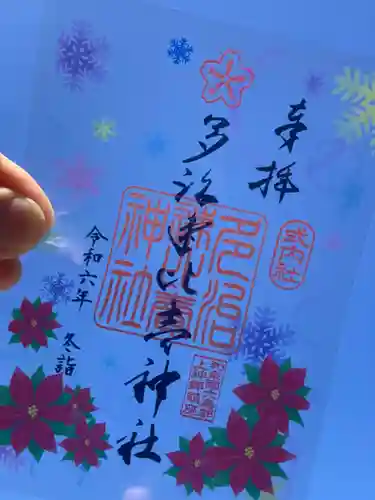 奉拝
式内社
多治速比売神社
多治速比売神社
令和六年
冬詣